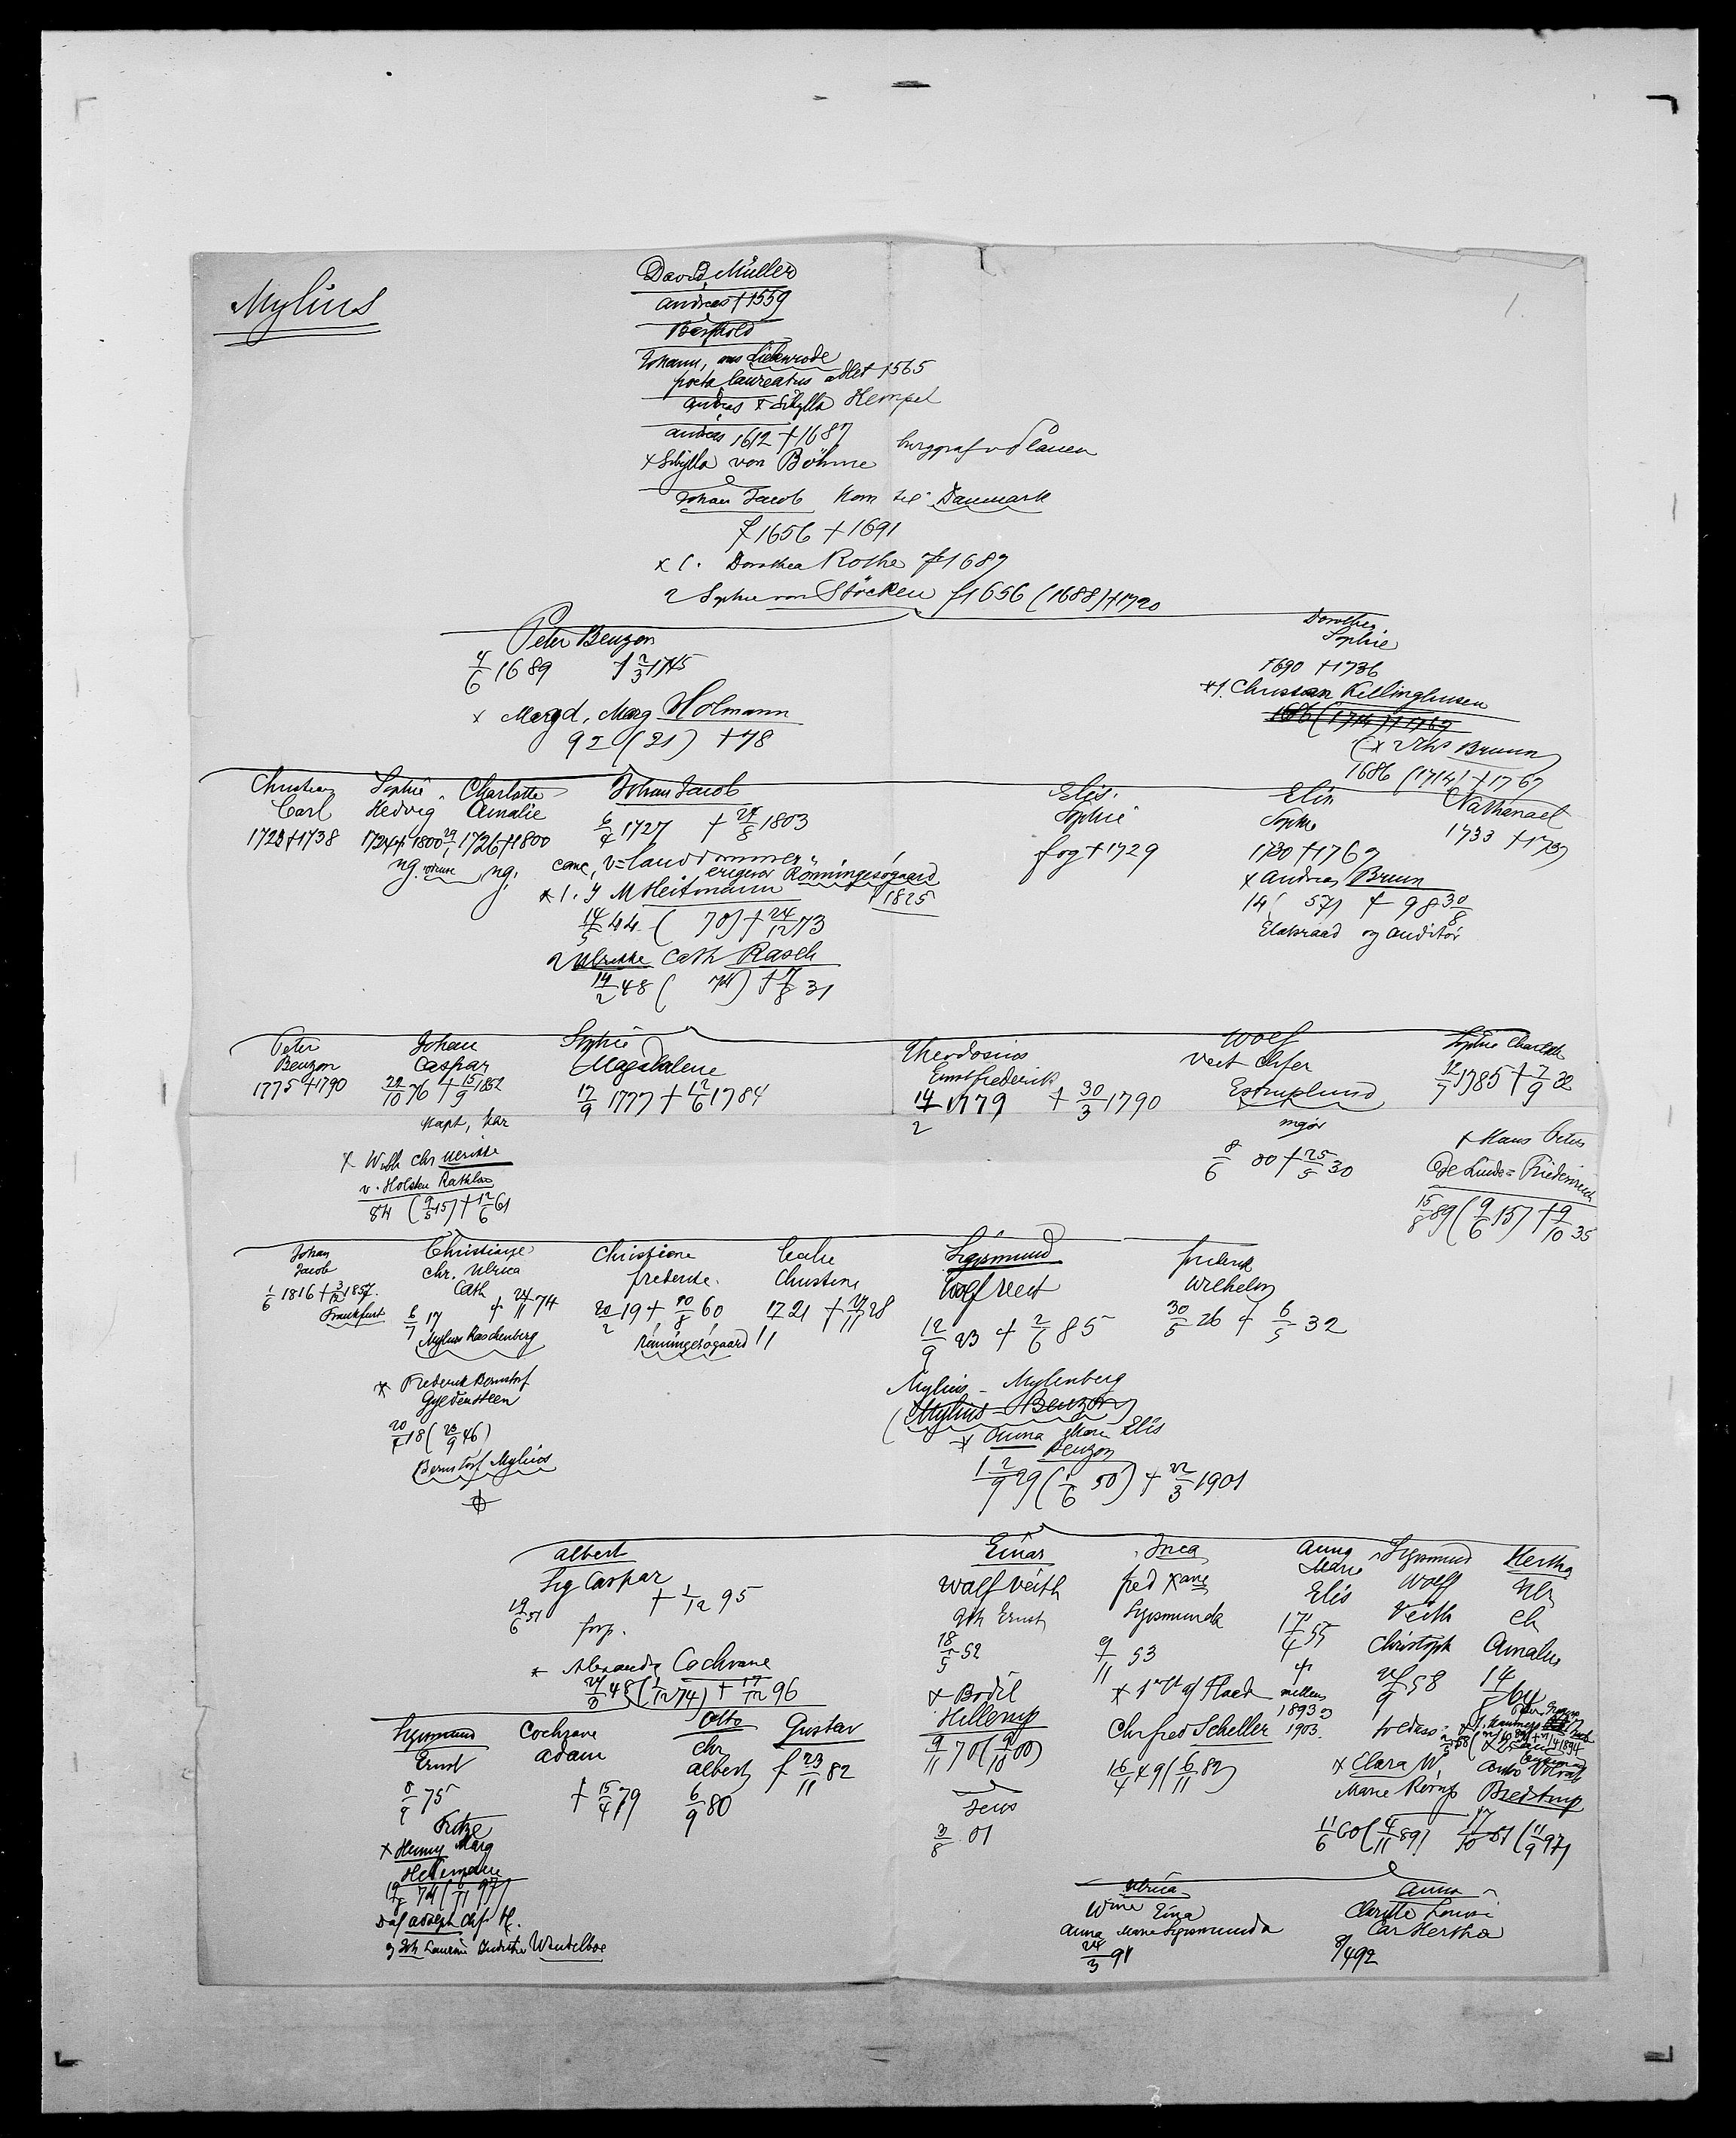 Mylius
1.
David Müller
Andreas † 1559
Berthold
Johann, aus Liebenrode
poeta laureatus adlet 1565
Andreas × Sibylla Hempel
Andreas 1612 † 1687
burggraf v Plauen
× Sibylla von Böhme
Johan Jacob Kom til Danmark
f 1656 † 1691
× 1. Dorothea Rothe † 1687
2 Sophie von Stöcken f 1656 (1688) † 1720
Peter Benzon
4/6 1689 † 2/3 1745
× Magd. Marg Holmann
92 (21) † 78
Dorothea
Sophie
1690 † 1736
× 1. Christian Killinghusen
1686 (1714) † 1767
(× 2 Ths Bruun
1686 (1714) † 1767
Christian
Carl
1722 † 1738
Sophie
Hedvig
1724 † 1800
ng.
Charlotte
Amalie
29/1 1726 † 1800
ng.
Johan Jacob
6/4 1727 † 24/8 1803
canc, v = landdommer
erigerer Rönningesøgaard
† 1825
× 1. J M Heitmann
14/5 44 ( 70) † 24/12 73
2 Ulrikke Cath Rasch
14/2 48 ( 74) † 7/8 31
Elis.
Sophie
f og † 1729
Elis
Sophie
1730 † 1767
× Andreas Bruun
14/ 571 † 98 30/8
Etatsraad og Auditør
Nathanael
1733 † 1737
Peter
Benzon
1775 † 1790
Johan
Caspar
22/10 76 † 15/9 1852
Kapt, Kar
× Wilh Chr Ulrikke
v. Holsten Rathlou
84 (9/5 15) † 12/6 61
Sophie
Magdalene
17/9 1777 † 12/6 1784
Theodosius
Ernst frederick
14/2 1779 † 30/3 1790
Wolf
Veit Chfer
Estruplund
major
8/6 80 † 25/5 30
Sophie Charlotte
12/7 1785 † 7/9 32
× Hans Peter
de Linde = Friedenreich
15/8 89 (9/6 15) † 9/10 35
Johan
Jacob
1/6 1816 † 3/12 1857.
Frankfurt
Christiane
Chr. Ulrica
Cath
6/7 17 † 24/11 74
Mylius Raschenberg
× Frederik Bernstorf
Gyldensteen
20/7 18 (23/9 46)
Bernstorf Mylius
Christiane
frederike.
20/2 19 † 20/8 60
Rönningesøgaard !!
Cathr
Christine
17 21 † 24/11 28
Sigismund
Wolf Veit
12/9 23 † 2/6 85
Mylius - Mylenberg
(Mylius - Benzon)
× Anna Marie Elis
Benzon
12/9 29 (1/6 50) † 22/3 1901
frederik
Wilhelm
30/5 26 † 6/5 32
Albert
Sig Caspar
19/6 51 † 1/12 95
forp.
× Alexandra Cochrane
24/9 48 (1/12 74) † 17/12 96
Einar
Wolf Veith
Joh Ernst
18/5 52
× Bodil
Hillerup
9/11 70 (9/10 00)
Jens
3/8 01
Inca
fred Xane
Sigismunda
9/11 53
× 1 Rlt af Flaed
Chr fred Scheller
16/4 49 (6/11 82)
Anna
Marie
Elis
17/4 55
†
mellem
1893 og
1903.
Sigismund
Wolff
Veith
Christoph
24/9 58
× Clara W,
Marie Rørup
11/6 60 (4/11 89)
Hertha
Ulr
Ch
Amalie
14
Bredstrup
17/10 61 (11/9 97)
Sigismund
Ernst
8/9 75
Fritze
× Henny Marg
Heilmann
19/8 74 (6/11 97)
D af Adolph Chf H.
og Joh Laurine Indrithe Wendelboe
Cochrane
Adam
† 15/4 79
Otto
Chr
Albert
6/9 80
Gustav
f 23/11 82
Ulrica
Wine Eina
Anna Marie Sigismunda
24/3 91
Anna
Charitte Louise
Car Hertha
8/4 92